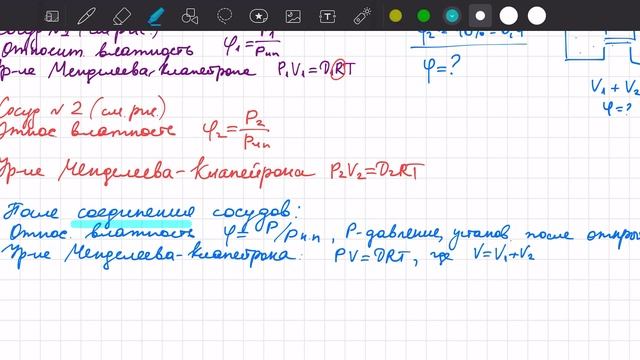 Сосуд № 1 (см. рис.)
Относит. влажность φ₁ = P₁/Pн.п
Ур-ие Менделеева-Клапейрона P₁V₁=ν₁RT
φ₂ = 40% = 0,4
φ = ?
V₁ + V₂
φ = ?
Сосуд № 2 (см. рис.)
Относ влажность φ₂ = P₂/Pн.п
Ур-ие Менделеева-Клапейрона P₂V₂=ν₂RT
После соединения сосудов:
Относ. влажность φ = P/Pн.п , P-давление, установ. после откры
Ур-ие Менделеева-Клапейрона: PV=νRT, где V=V₁+V₂